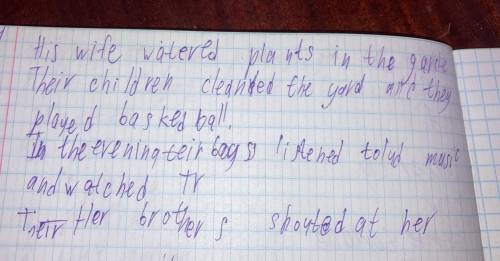 His wife watered plants in the garde
Their children cleanded the yard and they
played baskedball.
In the evening teir bags listened tolud music
and watched TV
Their Her brothers shouted at her